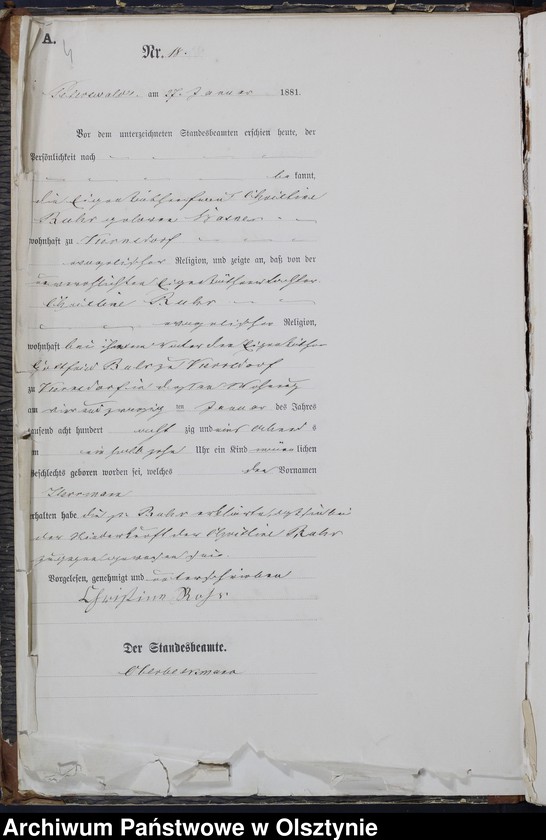 A.
4
Nr. 18.
am 27. Januar 1881.
Vor dem unterzeichneten Standesbeamten erschien heute, der
Persönlichkeit nach
be kannt,
die Eigenkäthnerfrau Christine
geborene
wohnhaft zu
evangelischer Religion, und zeigte an, daß von der
unverehlichten Eigenkäthnertochter
Christine
evangelischer Religion,
wohnhaft bei ihrem Vater dem Eigenkäthner
Gottfried
zu in dessen Wohnung
am vier und zwanzig ten Januar des Jahres
tausend acht hundert acht zig und eins Abend s
um ein halb zehn Uhr ein Kind männ lichen
Geschlechts geboren worden sei, welches den Vornamen
Herrmann
erhalten habe. die erklärte, daß sie bei
der Niederkunft der Christine
zugegen gewesen sei.
Vorgelesen, genehmigt und unterschrieben
Christine
Der Standesbeamte.
Archiwum Państwowe w Olsztynie